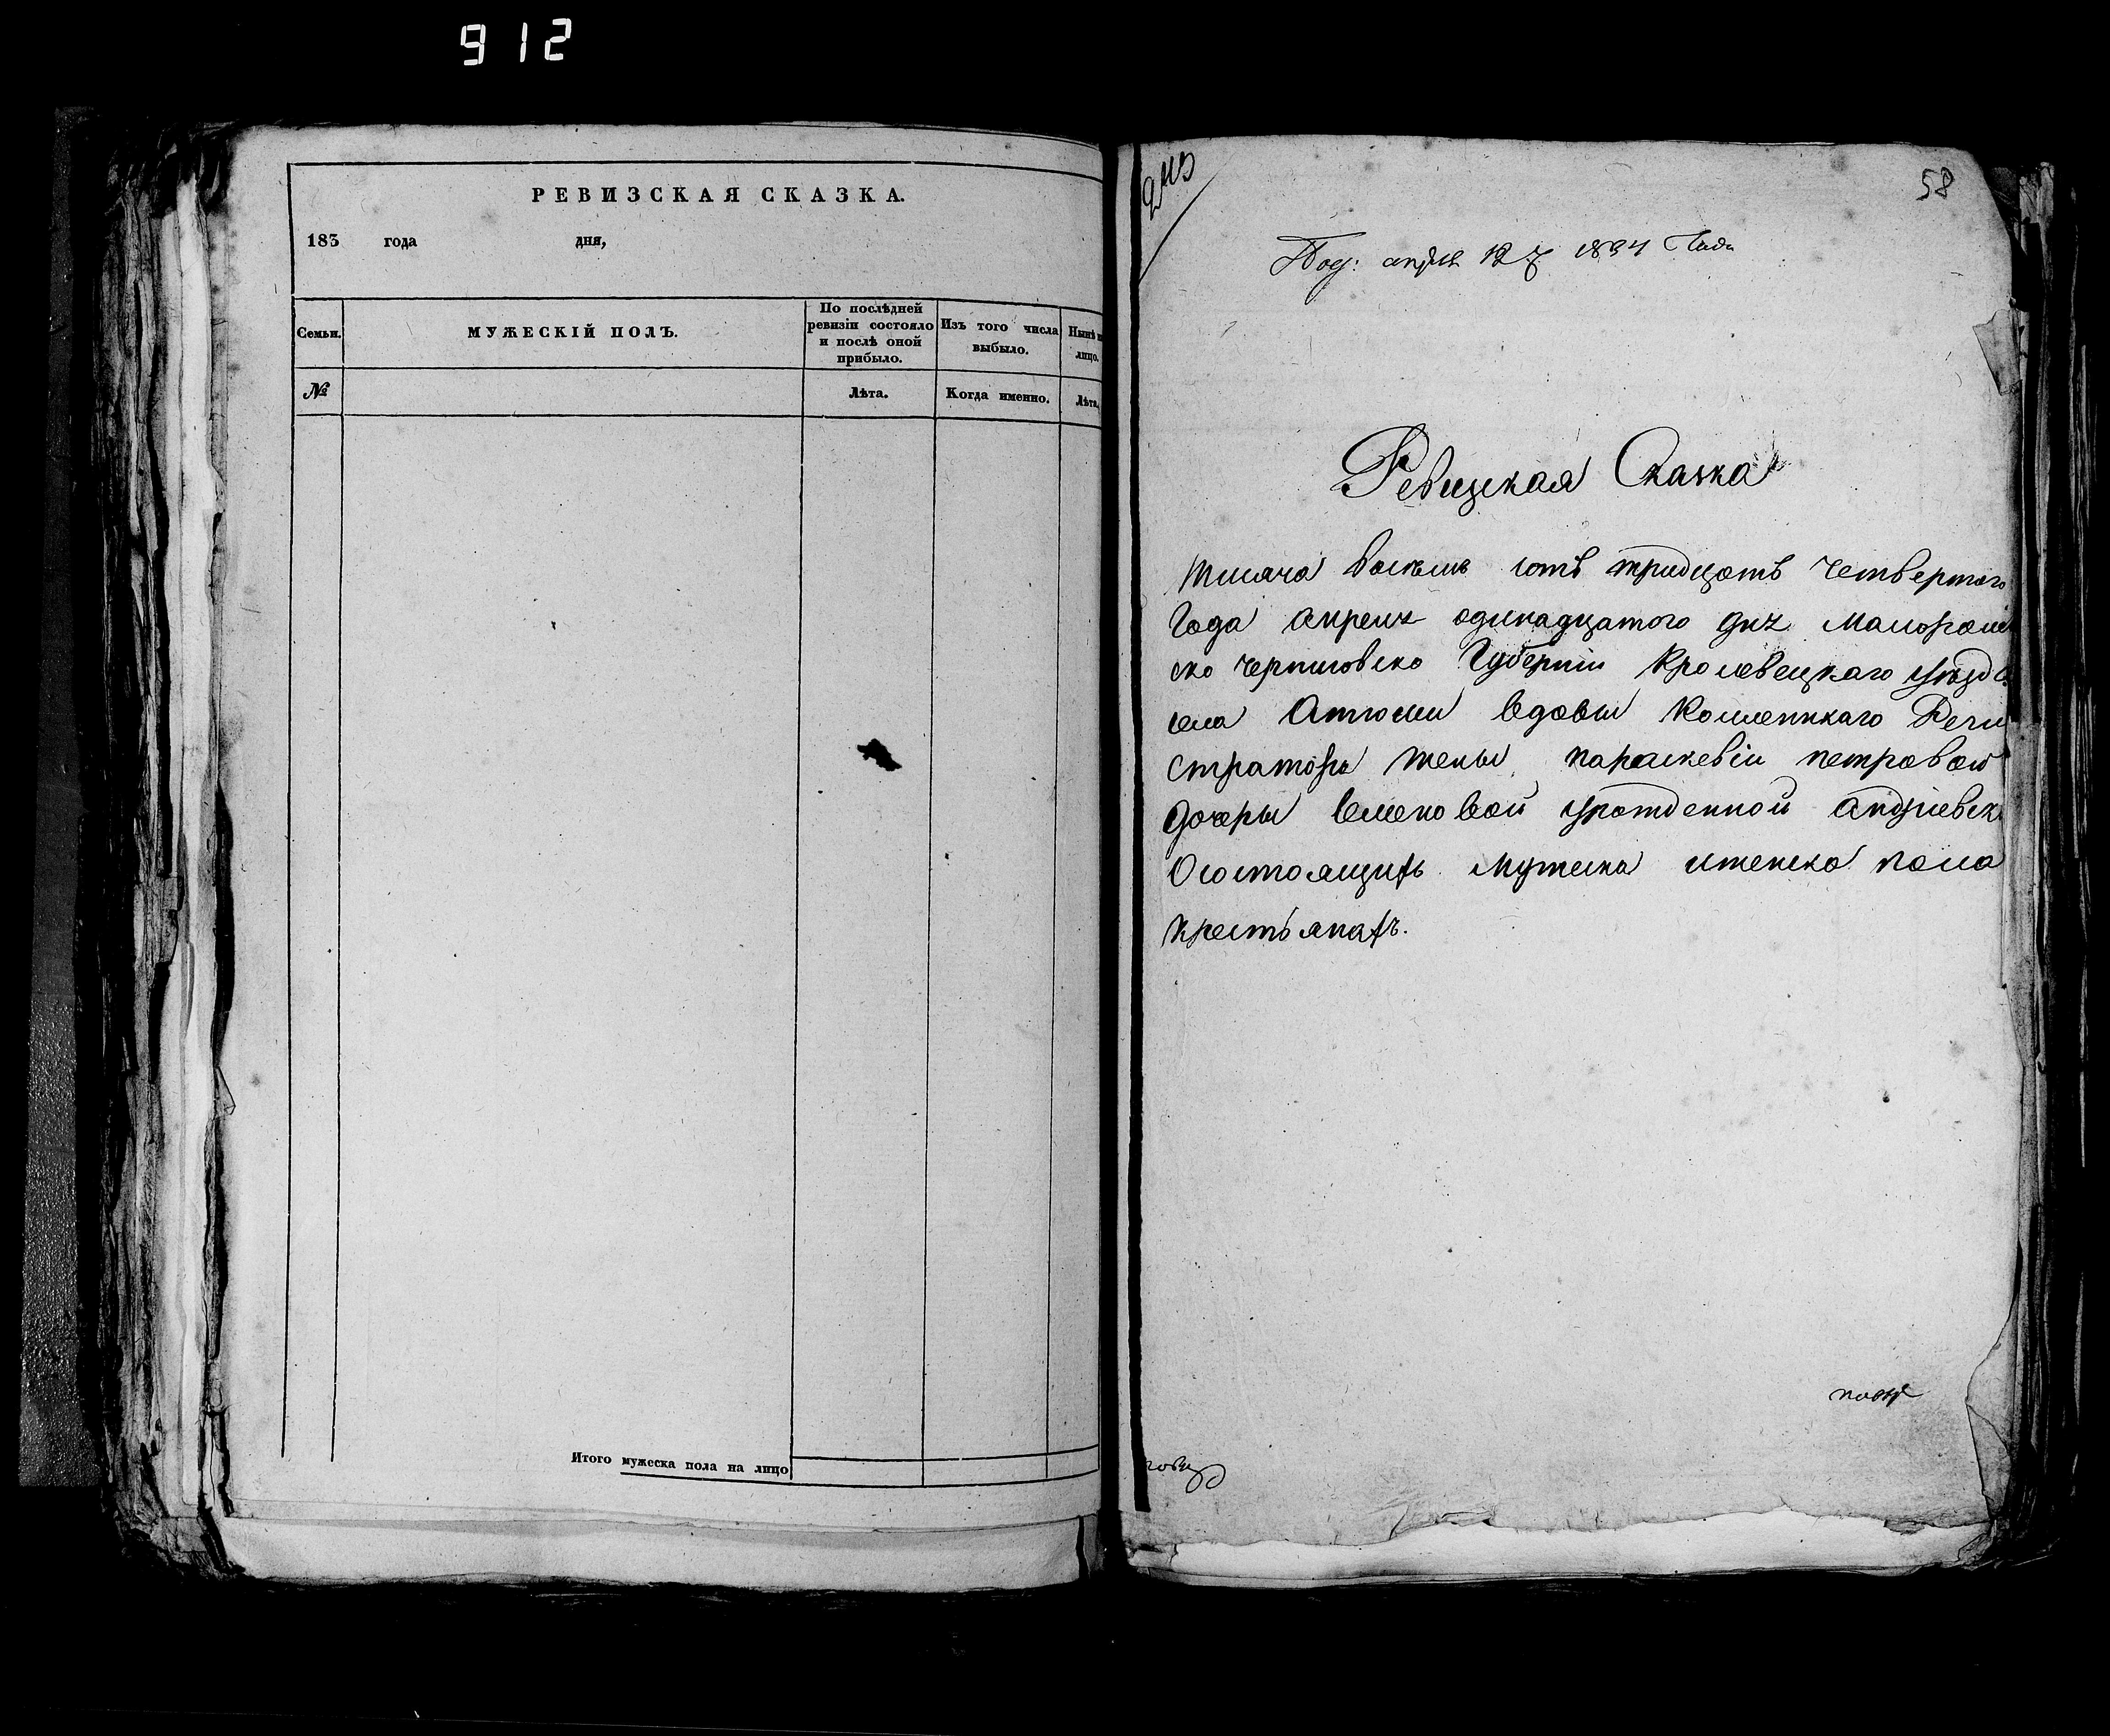 912
РЕВИЗСКАЯ СКАЗКА.
183 года дня,
Семьи.
МУЖЕСКІЙ ПОЛЪ.
По послѣдней
ревизіи состояло
и послѣ оной
прибыло.
Изъ того числа
выбыло.
Нынѣ
лицо.
№
Лѣта.
Когда именно.
Лѣта.
Итого мужеска пола на лицо
58
Под: 1834 Года
Ревизская Сказка
тисяча восемь сотъ тридцать четвертого
Года апреля одинадцатого дня Малоросій
ско черниговско Губерніи Кролевецкаго уезда
села Атюши вдовы Коллежскаго Реги
стратора жены параскевіи петровой
дочеры рожденной
Осостоящихъ Мужеска иженска пола
крестьянахъ.